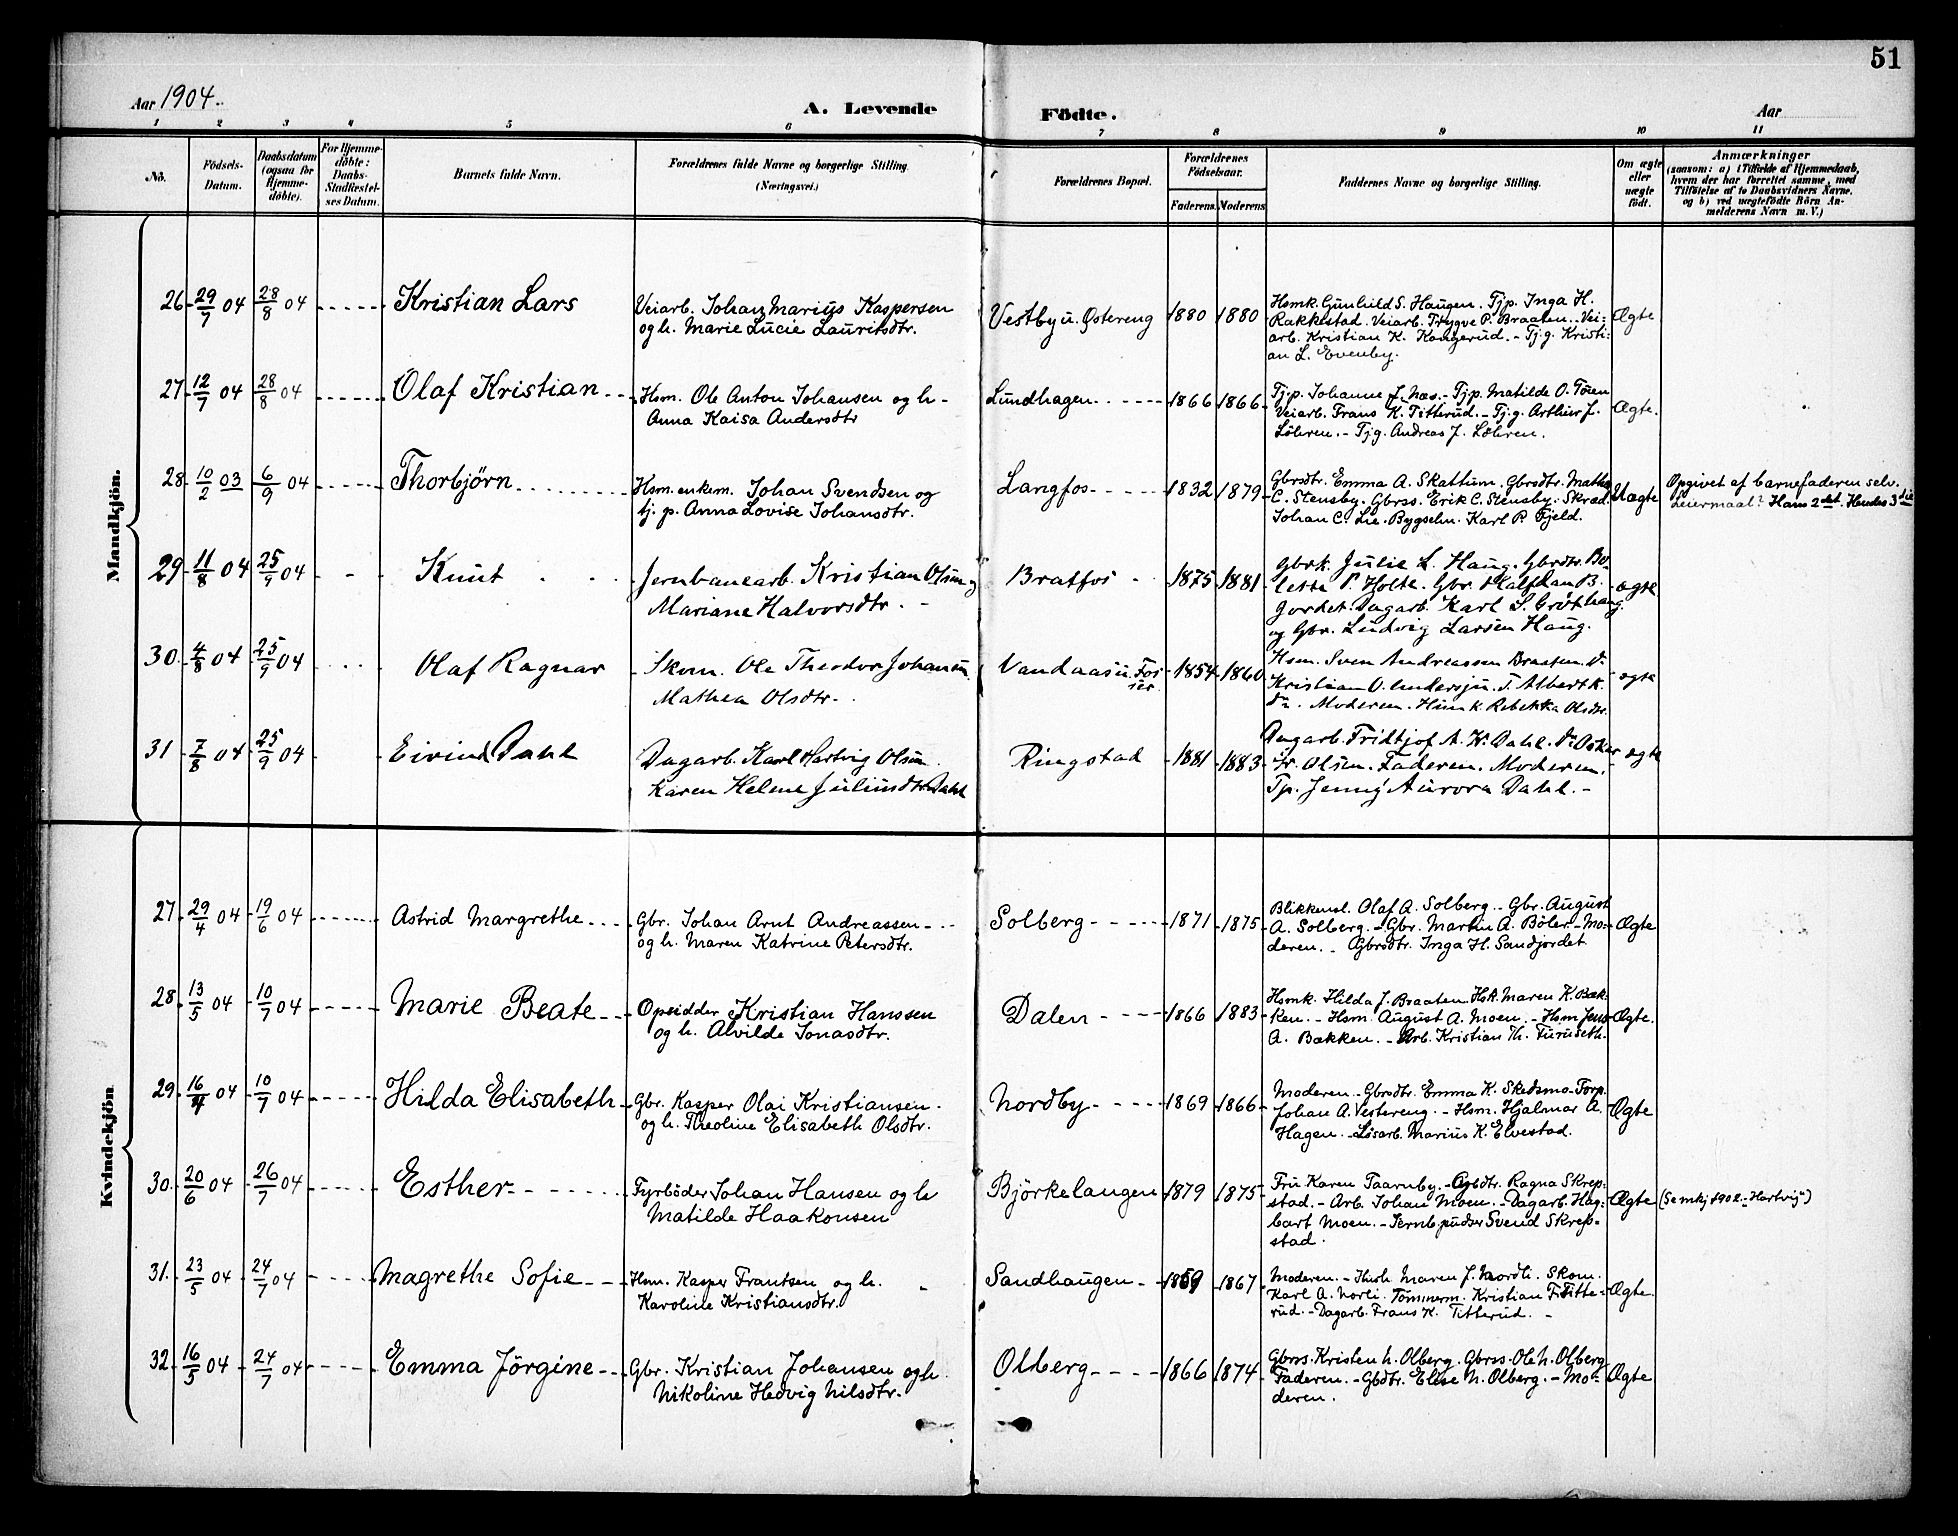 51
Aar 1904.
A. Levende Födte.
Aar
1 2 3 4 5 6 7 8 9 10 11
No.
Födsels-Datum.
Daabsdatum (ogsaa for Hjemme-döbte).
For Hjemme-döbte: Daabs-Stadfæstel-ses Datum.
Barnets fulde Navn.
Forældrenes fulde Navne og borgerlige Stilling. (Næringsvei.)
Forældrenes Bopæl.
Forældrenes Födselsaar.
Faderens. Moderens.
Faddernes Navne og borgerlige Stilling.
Om ægte eller uægte födt.
Anmærkninger
(saasom: a) i Tilfælde af Hjemmedaab, hvem der har forrettet samme, med Tilföielse af to Daabsvidners Navne, og b) ved uægtefödte Börn An-melderens Navn m. V.)
Mandkjön.
26 29/7 04 28/8 04 Kristian Lars
Veiarb. Johan Marius Kaspersen
og h. Marie Lucie Lauritsdtr.
Vestby u. Østereng 1880 1880
Hsmk. Gunhild S. Haugen. Tjp. Inga H.
Rakkestad. Veiarb. Trygve P. Braaten. Vei-
arb. Kristian K. Kongerud. - Tj.g. Kristi-
an L. Evenby.
Ægte
27 12/7 04 28/8 04 Olaf Kristian
Hsm. Ole Anton Johansen og h.
Anna Kaisa Andersdtr
Lundhagen 1866 1866
Tj.p. Johanne J. Næs. - Tjp. Matilde O. Toren
Veiarb. Frans K. Titterud. - Tj.g. Arthur J.
Löhren. - Tjg. Andreas J. Löhren.
Ægte.
28 10/2 03 6/9 04 Thorbjörn
Hsm. enkem. Johan Svendsen og
tj. p. Anna Lovise Johansdtr.
Langfos 1832 1879
Gbrdtr. Emma A. Skattum. Gbrsdtr. Mathea
C. Stensby. Gbrss. Erik C. Stensby. Skræd.
Johan C. Lie. Bygselm. Karl P. Fjeld.
Uægte
Opgivet af barnefaderen selv.
Leiermaal: Hans 2det. Hendes 3die
29 11/8 04 25/9 04 Knut
Jernbanearb. Kristian Olsen og
Mariane Halvorsdtr.
Bratfos 1875 1881
Gbrk. Julie L. Haug. Gbrdtr. Bo-
lette P. Holte. Gbr. Halfdan B.
Jordet. Dagarb. Karl S. Gröthaug
og Gbr. Ludvig Larsen Haug.
ægte
30 4/8 04 25/9 04 Olaf Ragnar
Skom. Ole Theodor Johansen
Mathea Olsdtr.
Vandaas u. Fosser 1854 1860
Hsm. Sven Andreassen Braaten. Do
Kristian O. T. Albert K.
Do. Moderen. Hsmk. Rebekka Olsdtr.
ægte
31 7/8 04 25/9 04 Eivind Dahl
Dagarb. Karl Hartvig Olsen
Karen Helene Juliusdtr. Dahl
Ringstad 1881 1883
Dagarb. Fridtjof A. K. Dahl. Do Oskar
Fr. Olsen. Faderen. Moderen.
Tp. Jenny Aurora Dahl. -
ægte
Kvindekjön
27 29/4 04 19/6 04 Astrid Margrethe
Gbr. Johan Arnt Andreassen
og h. Maren Katrine Petersdtr.
Solberg 1871 1875
Blikkensl. Olaf A. Solberg. - Gbr. August
A. Solberg. - Gbr. Martin A. Böler. - Mo-
deren. - Gbrsdtr. Inga H. Sandjordet
Ægte
28 13/5 04 10/7 04 Marie Beate
Opsidder Kristian Hanssen
og h. Alvilde Jonasdtr.
Dalen 1866 1883
Hsmk. Hilda J. Braaten. Hsk. Maren K. Bæk-
ken. - Hsm. August A. Moen. - Hsm Jens
A. Bækken. - Arb. Kristian Th. Furuseth.
Ægte.
29 16/4 04 10/7 04 Hilda Elisabeth
Gbr. Kasper Olai Kristiansen.
og h. Theoline Elisabeth Olsdtr.
Nordby 1869 1866
Moderen - Gbrdtr. Emma K. Skedsmo-Torp.
Johan A. Vestereng. - Hsm. Hjalmar A.
Hagen. - Løsarb. Marius K. Elvestad.
Ægte
30 20/6 04 26/7 04 Esther
Fyrböder Johan Hansen og h
Matilde Haakonsen
Björkelangen 1879 1875
Fru Karen Taarnby. - Gbdtr. Ragna Skrep-
stad. - Arb. Johan Moen. - Dagarb. Hag-
bart Moen. - Jernb.pudser Svend Skrep-
stad.
Ægte
(Se mkj 1902 - Hartvig)
31. 23/5 04 24/7 04 Magrethe Sofie
Hsm. Kasper Frantsen og h.
Karoline Kristiansdtr.
Sandhaugen 1859 1867
Moderen. - Maren J. Nordli. Skom.
Karl A. Norli. Tömmerm. Kristian F. Titte-
rud. - Dagarb. Frans K. Titterud. -
Ægte.
32 16/5 04 24/7 04 Emma Jörgine
Gbr. Kristian Johansen og h.
Nikoline Hedvig Nilsdtr.
Olberg 1866 1874
Gbrss. Kristen N. Olberg. Gbrss. Ole N. Olberg
Faderen. - Gbdtr. Elise N. Olberg. - Mo-
deren.
Ægte